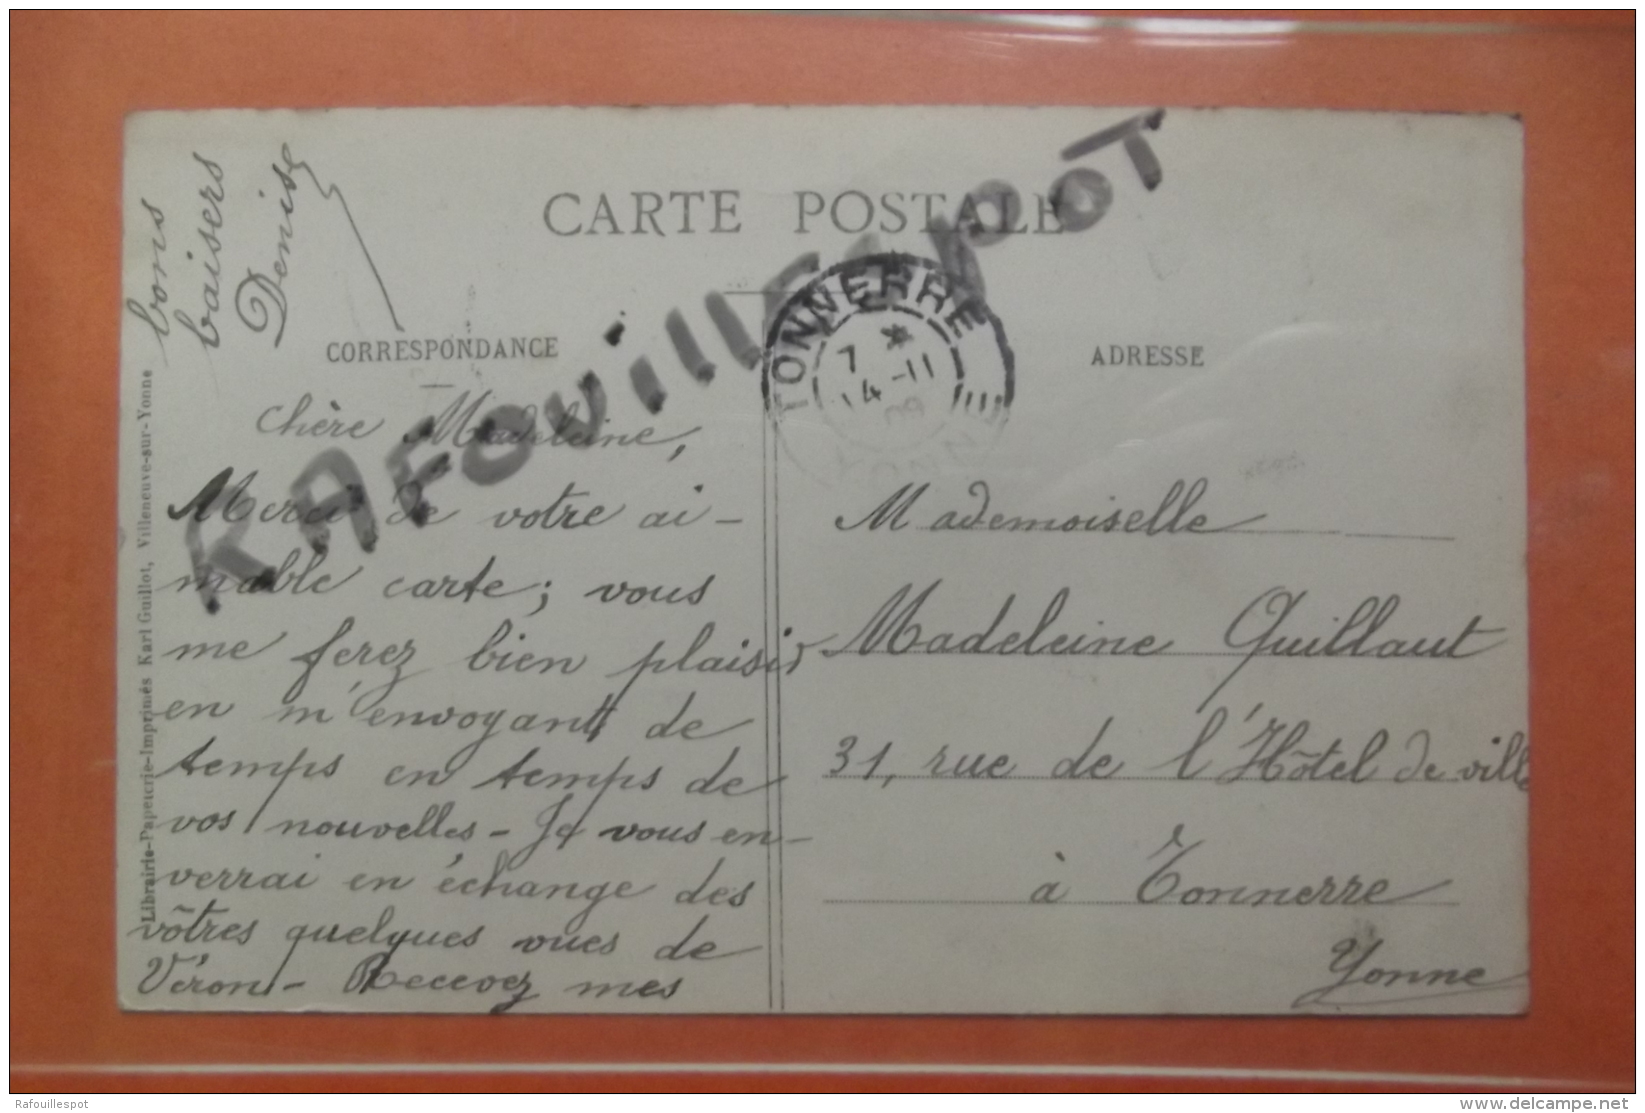 CARTE POSTALE
RAFOUILLESPOT
TONNERRE
7 *
14 -11
CORRESPONDANCE
ADRESSE
Chère Madeleine,
Merci de votre ai-
mable carte; vous
me ferez bien plaisir
en m'envoyant de
temps en temps de
vos nouvelles - Je vous en-
verrai en échange des
vôtres quelques vues de
Véron - Recevez mes
bons
baisers
Denise
Mademoiselle
Madeleine Quillaut
31, rue de l'Hôtel de ville
à Tonnerre
Yonne
Librairie-Papeterie-Imprimés Karl Guillot, Villeneuve-sur-Yonne
Rafouillespot
www.delcampe.net